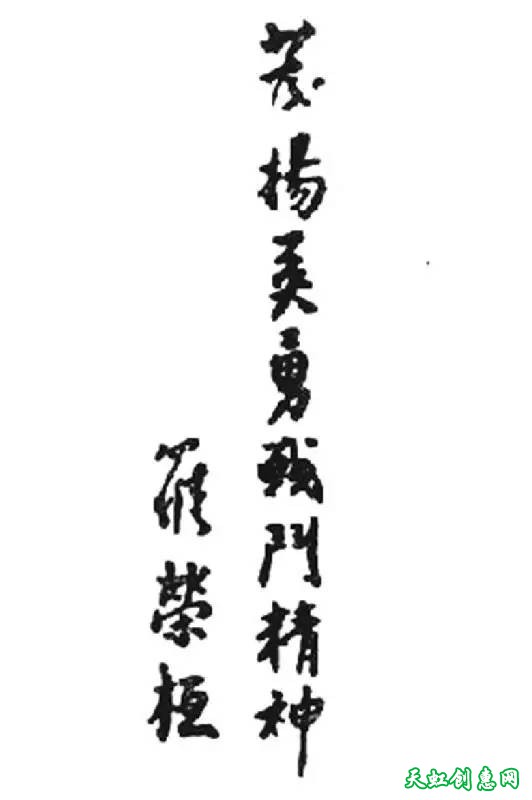 發揚英勇戰鬥精神
羅榮桓
天虹创意网